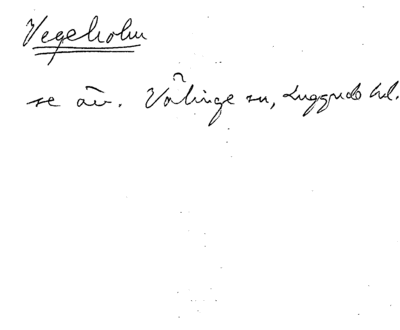 Vegeholm
se äv. Välinge sn, Luggude hd.